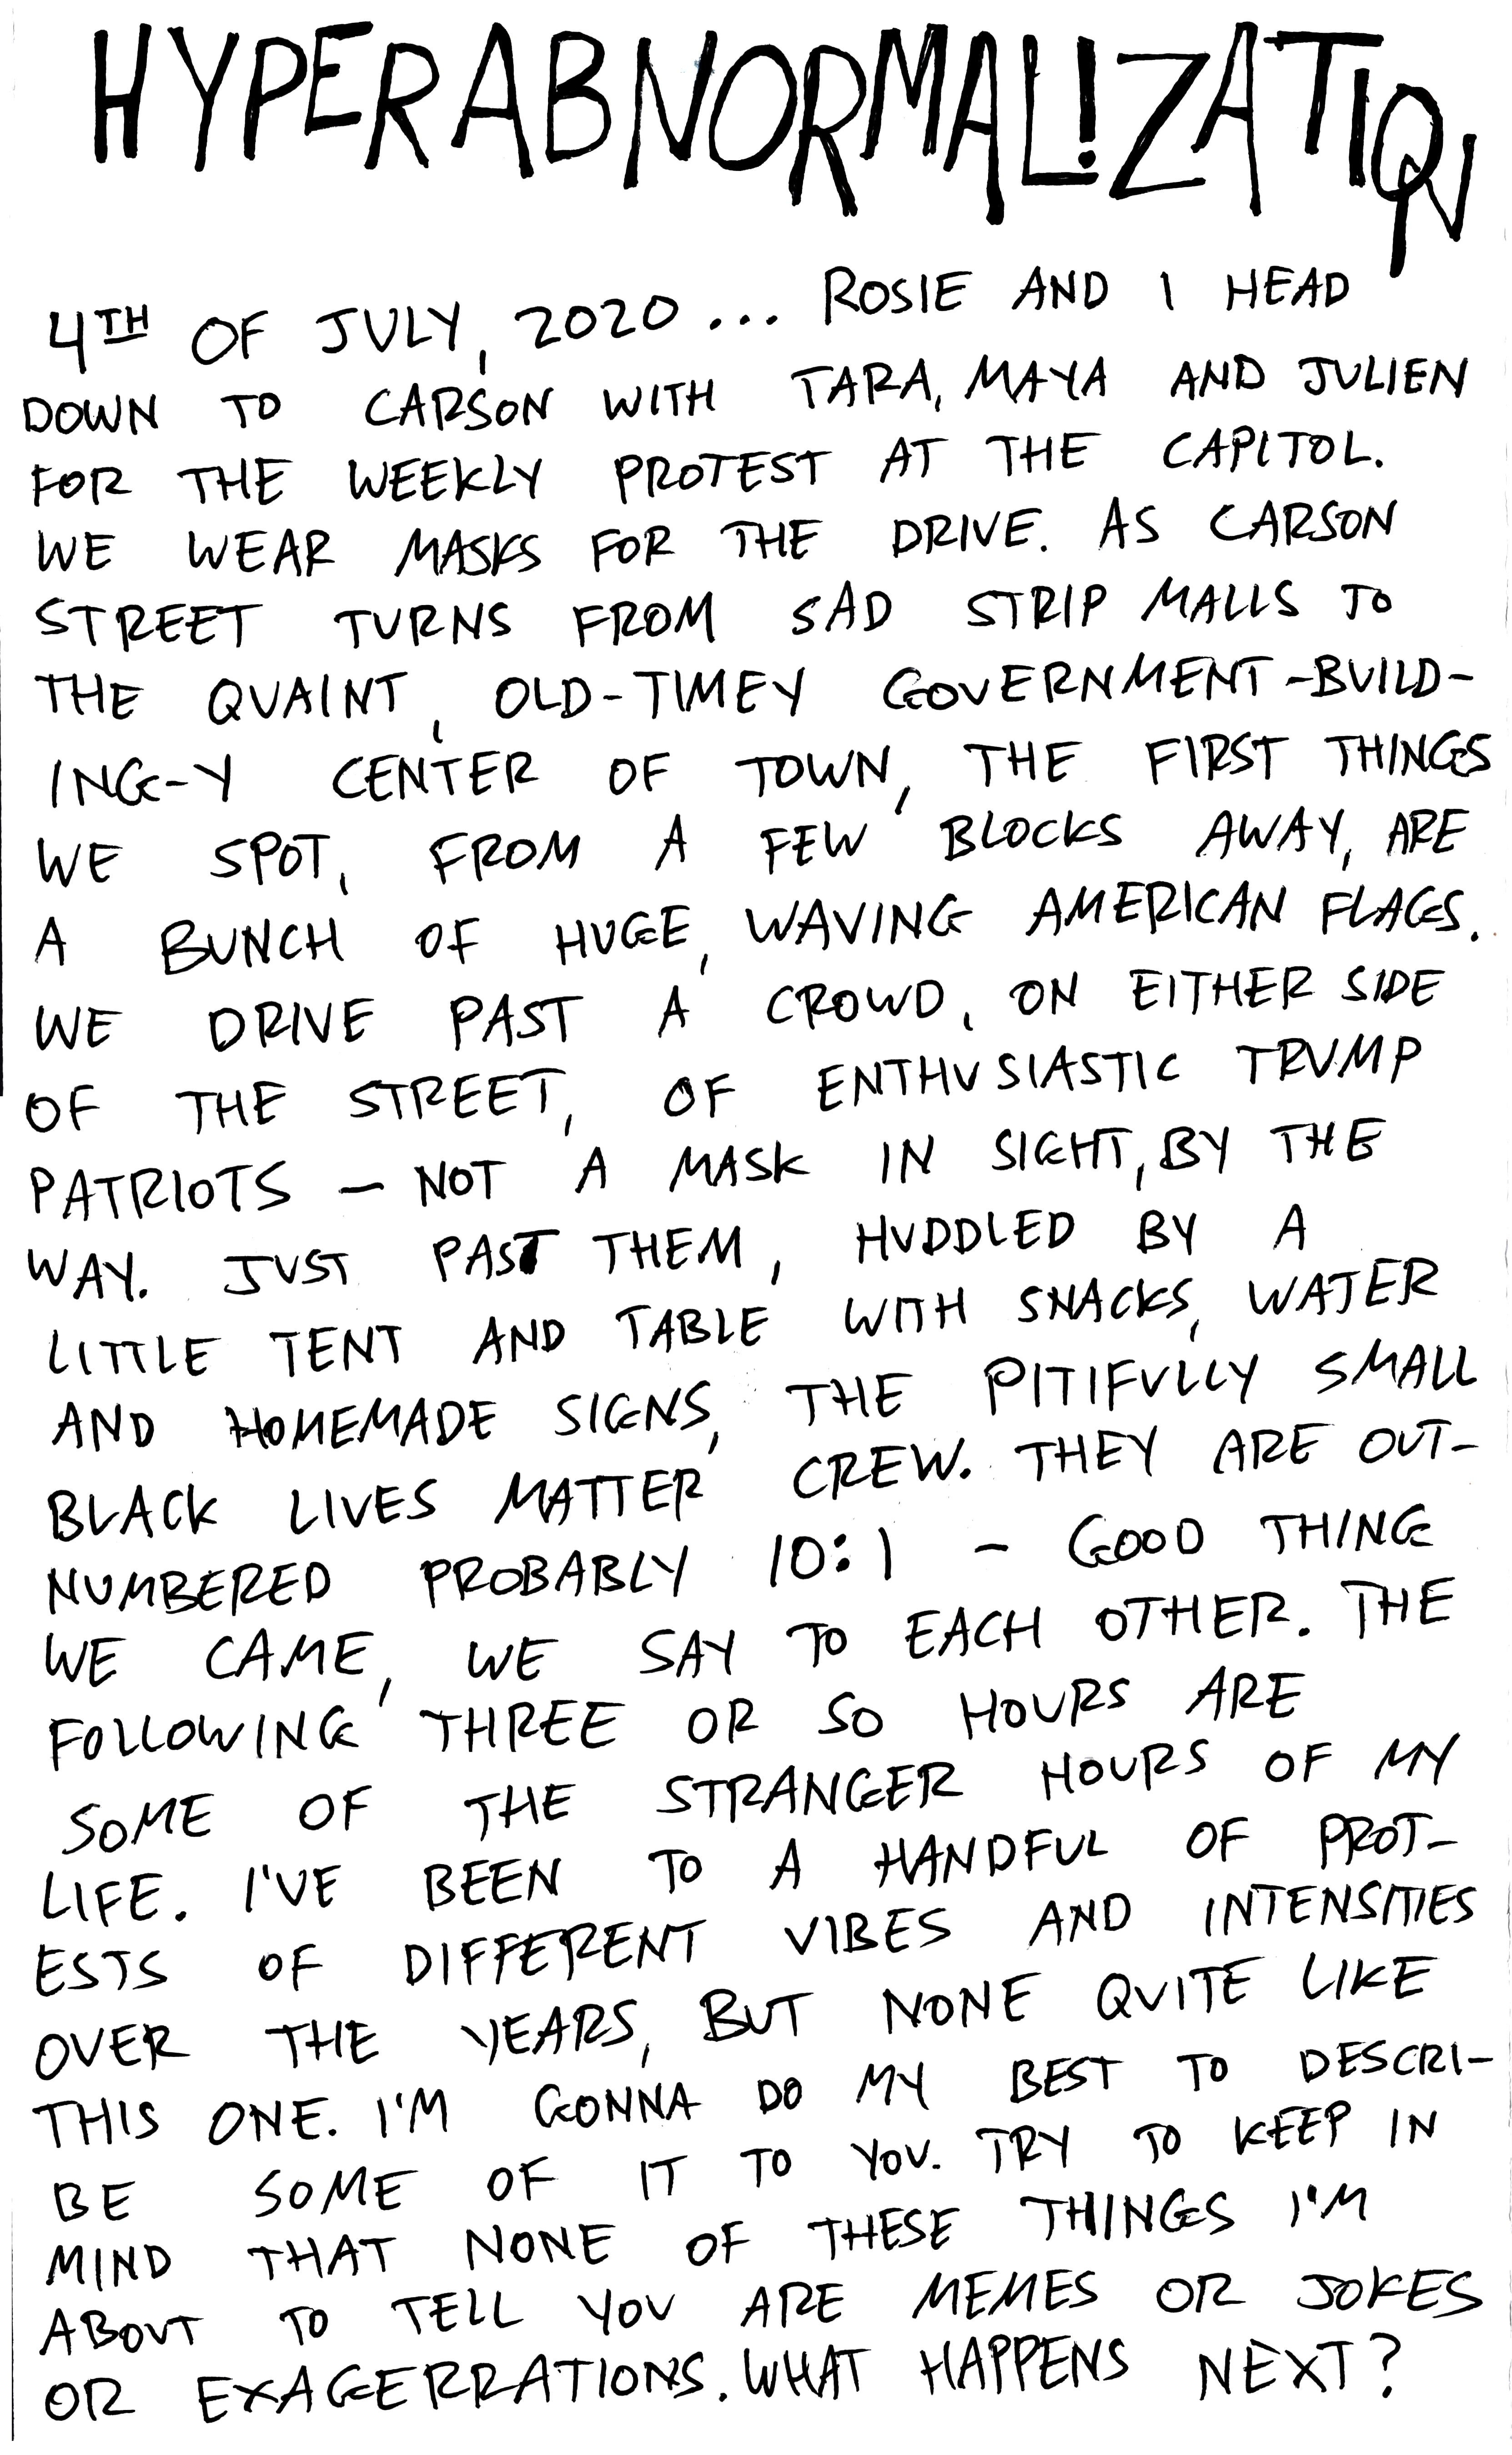 HYPERABNORMAL!ZATION
4TH OF JULY, 2020... ROSIE AND I HEAD
DOWN TO CARSON WITH TARA, MAYA AND JULIEN
FOR THE WEEKLY PROTEST AT THE CAPITOL.
WE WEAR MASKS FOR THE DRIVE. AS CARSON
STREET TURNS FROM SAD STRIP MALLS TO
THE QUAINT, OLD-TIMEY GOVERNMENT-BUILD-
ING-Y CENTER OF TOWN, THE FIRST THINGS
WE SPOT, FROM A FEW BLOCKS AWAY, ARE
A BUNCH OF HUGE, WAVING AMERICAN FLAGS.
WE DRIVE PAST A CROWD, ON EITHER SIDE
OF THE STREET, OF ENTHUSIASTIC TRUMP
PATRIOTS – NOT A MASK IN SIGHT, BY THE
WAY. JUST PAST THEM, HUDDLED BY A
LITTLE TENT AND TABLE WITH SNACKS, WATER
AND HOMEMADE SIGNS, THE PITIFULLY SMALL
BLACK LIVES MATTER CREW. THEY ARE OUT-
NUMBERED PROBABLY 10:1 – GOOD THING
WE CAME, WE SAY TO EACH OTHER. THE
FOLLOWING THREE OR SO HOURS ARE
SOME OF THE STRANGER HOURS OF MY
LIFE. I'VE BEEN TO A HANDFUL OF PROT-
ESTS OF DIFFERENT VIBES AND INTENSITIES
OVER THE YEARS, BUT NONE QUITE LIKE
THIS ONE. I'M GONNA DO MY BEST TO DESCRI-
BE SOME OF IT TO YOU. TRY TO KEEP IN
MIND THAT NONE OF THESE THINGS I'M
ABOUT TO TELL YOU ARE MEMES OR JOKES
OR EXAGERRATIONS. WHAT HAPPENS NEXT?